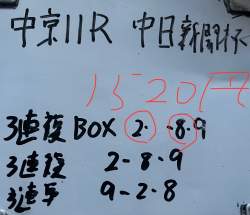 中京11R 中日新聞杯
1520円
3連複BOX 2. .8.9
3連複 2-8-9
3連単 9-2-8